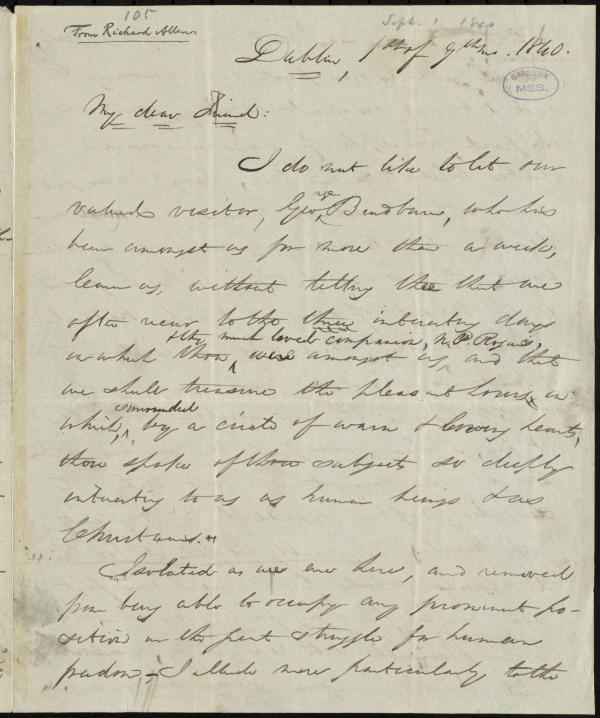 105
Sept. 1. 1840
From Richard Allen
Dublin, 1st of 9th mo. 1840.
GARRISON
MSS.
My dear Friend:
I do not like to let our
valued visitor, Geo, Bradburn, who has
rge
been amongst us for more than a week,
leave us, without telling thee that we
often recur to the three interesting days
& thy much loved companion, N. P. Rogers,
in which thou were amongst us, and that
we shall treasure the pleasant hours in
surrounded
which, by a circle of warm & loving hearts,
thou spoke of those subjects so deeply
interesting to us as human beings & as
Christians.
Isolated as we are here, and removed
from being able to occupy any prominent po-
sition in the great struggle for human
freedom, I allude more particularly to the